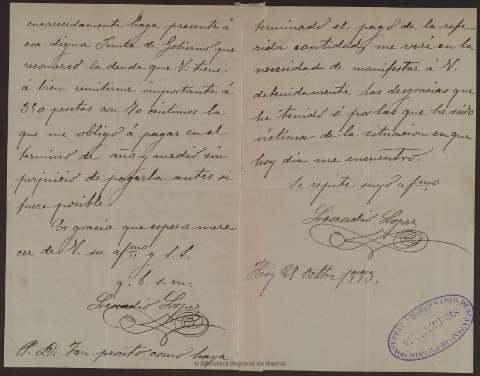 encarecidamente haga presente á
esa digna Junta de Gobierno, que
reconozco la deuda que V. tiene
á bien remitirme importante á
320 pesetas con 70 céntimos la
que me obligo á pagar en el
termino de año y medio sin
perjuicio de pagarla antes si
fuere posible.
Es gracia que espera mere-
cer de V. su af.mo y s. s.
q. b. s. m.
Leocadio Lopez
P. D. Tan pronto como haya
terminado el pago de la refe-
rida cantidad, me veré en la
necesidad de manifestar á V.
detenidamente las desgracias que
he tenido ó por las que he sido
victima de la situacion en que
hoy dia me encuentro.
Se repite suyo af.mo
Leocadio Lopez
Hoy 29 octbre
© Biblioteca Regional de Madrid